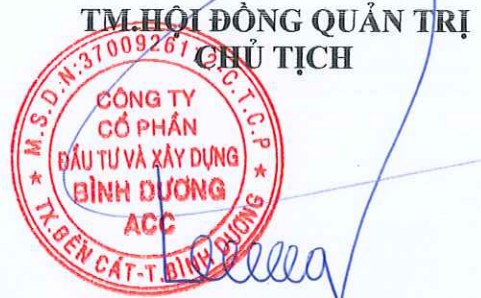 TM.HỘI ĐỒNG QUẢN TRỊ
CHỦ TỊCH
M.S.D.N:37009261
C.T.C.P
CÔNG TY
CỔ PHẦN
ĐẦU TƯ VÀ XÂY DỰNG
BÌNH DƯƠNG
ACC
TX.BẾN CÁT-T.BÌNH DƯƠNG